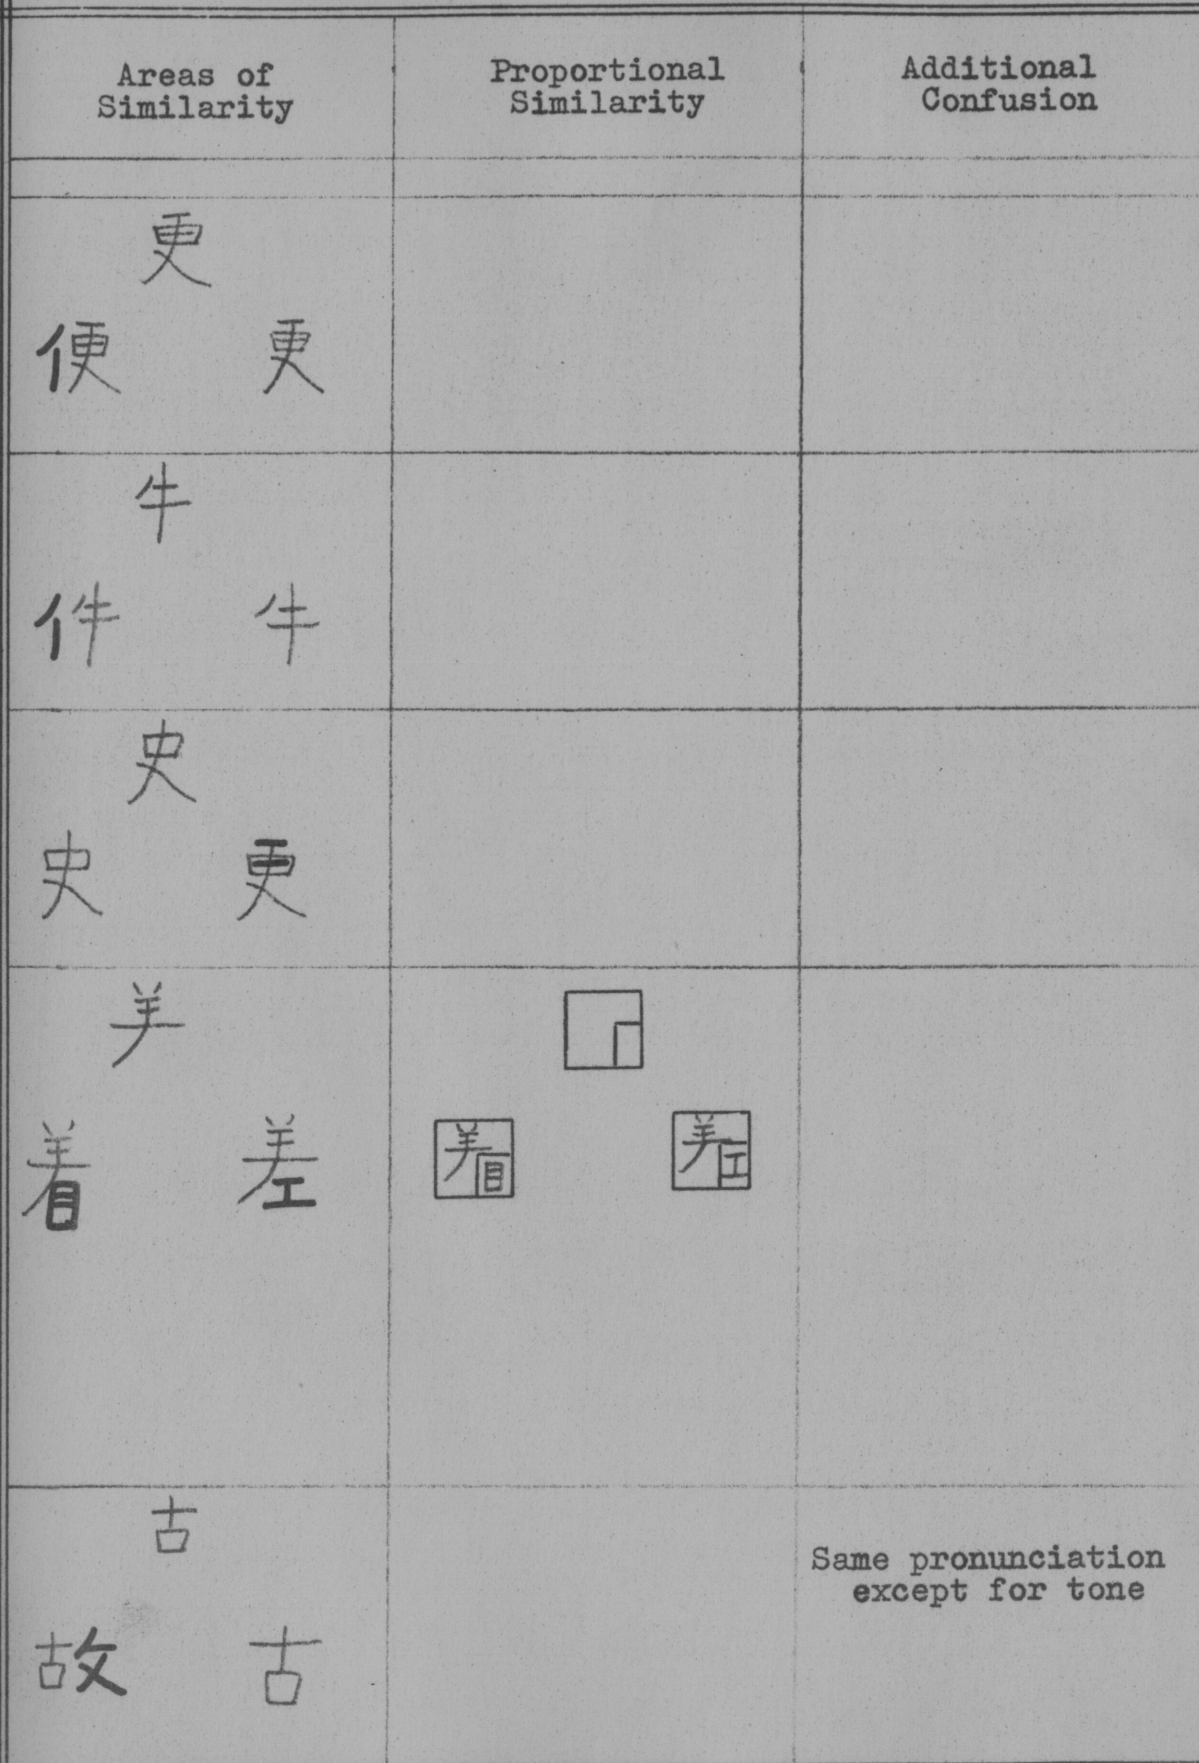 Areas of
Similarity
Proportional
Similarity
Additional
Confusion
更
便 更
牛
件 牛
史
史 更
着 差
着 差
古
Same pronunciation
except for tone
故 古